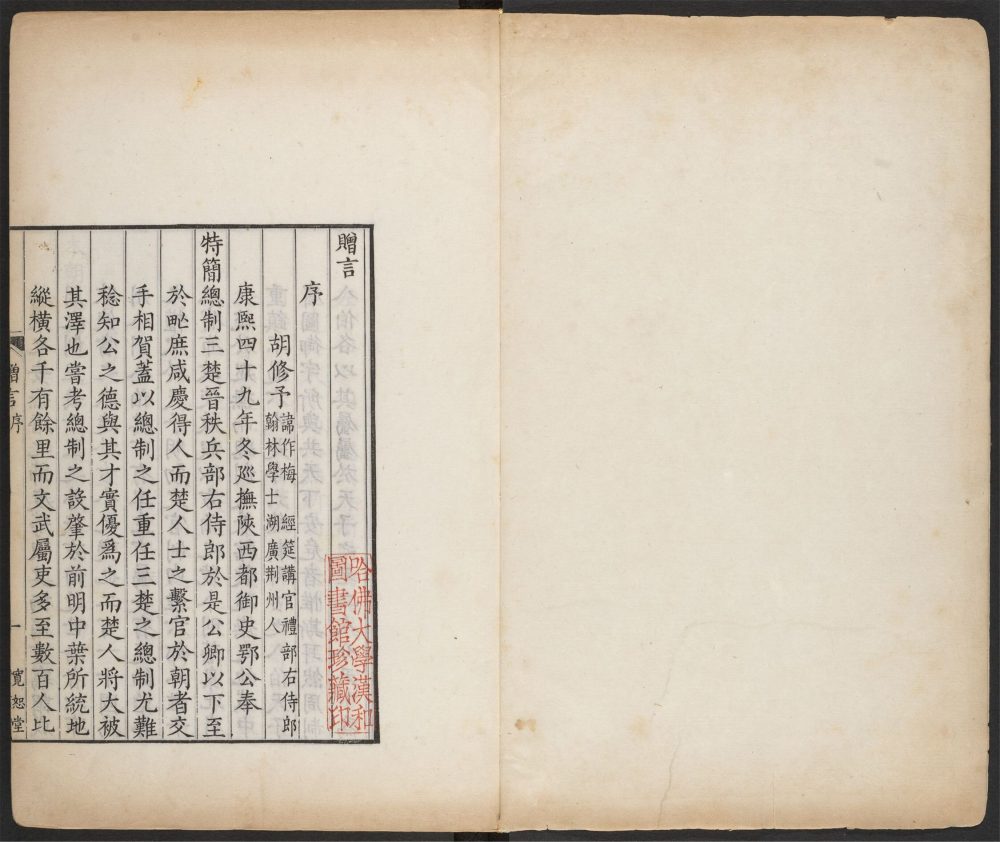 贈言
序
胡修予諱作梅 經筵講官禮部右侍郎
翰林學士湖廣荆州人
康熙四十九年冬廵撫陝西都御史鄂公奉
特簡總制三楚晉秩兵部右侍郎於是公卿以下至
於甿庶咸慶得人而楚人士之繫官於朝者交
手相賀蓋以總制之任重任三楚之總制尤難
稔知公之德與其才實優爲之而楚人將大被
其澤也嘗考總制之設肇於前明中葉所統地
縱橫各千有餘里而文武屬吏多至數百人比
贈言序
一
寬恕堂
哈佛大學漢和
圖書館珍藏印